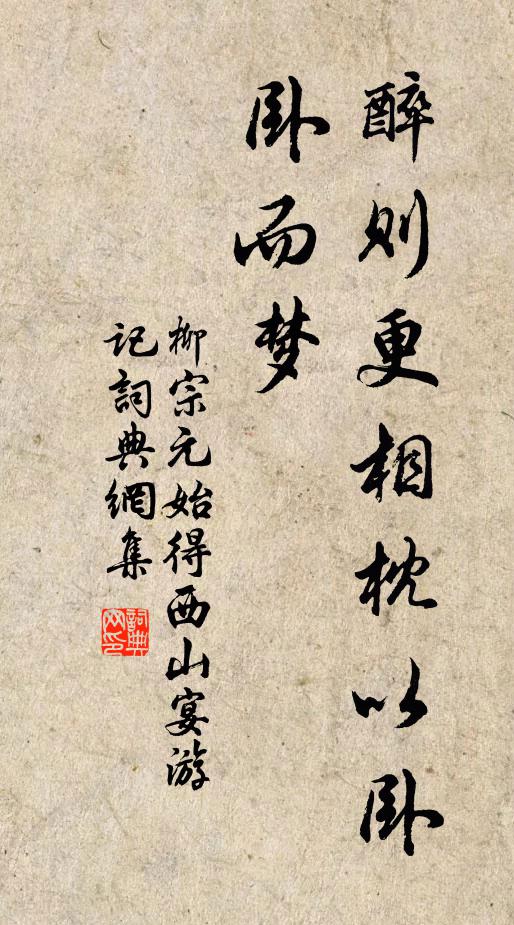 醉则更相枕以卧
卧而梦
柳宗元始得西山宴游
记詞典網集
詞典
网印